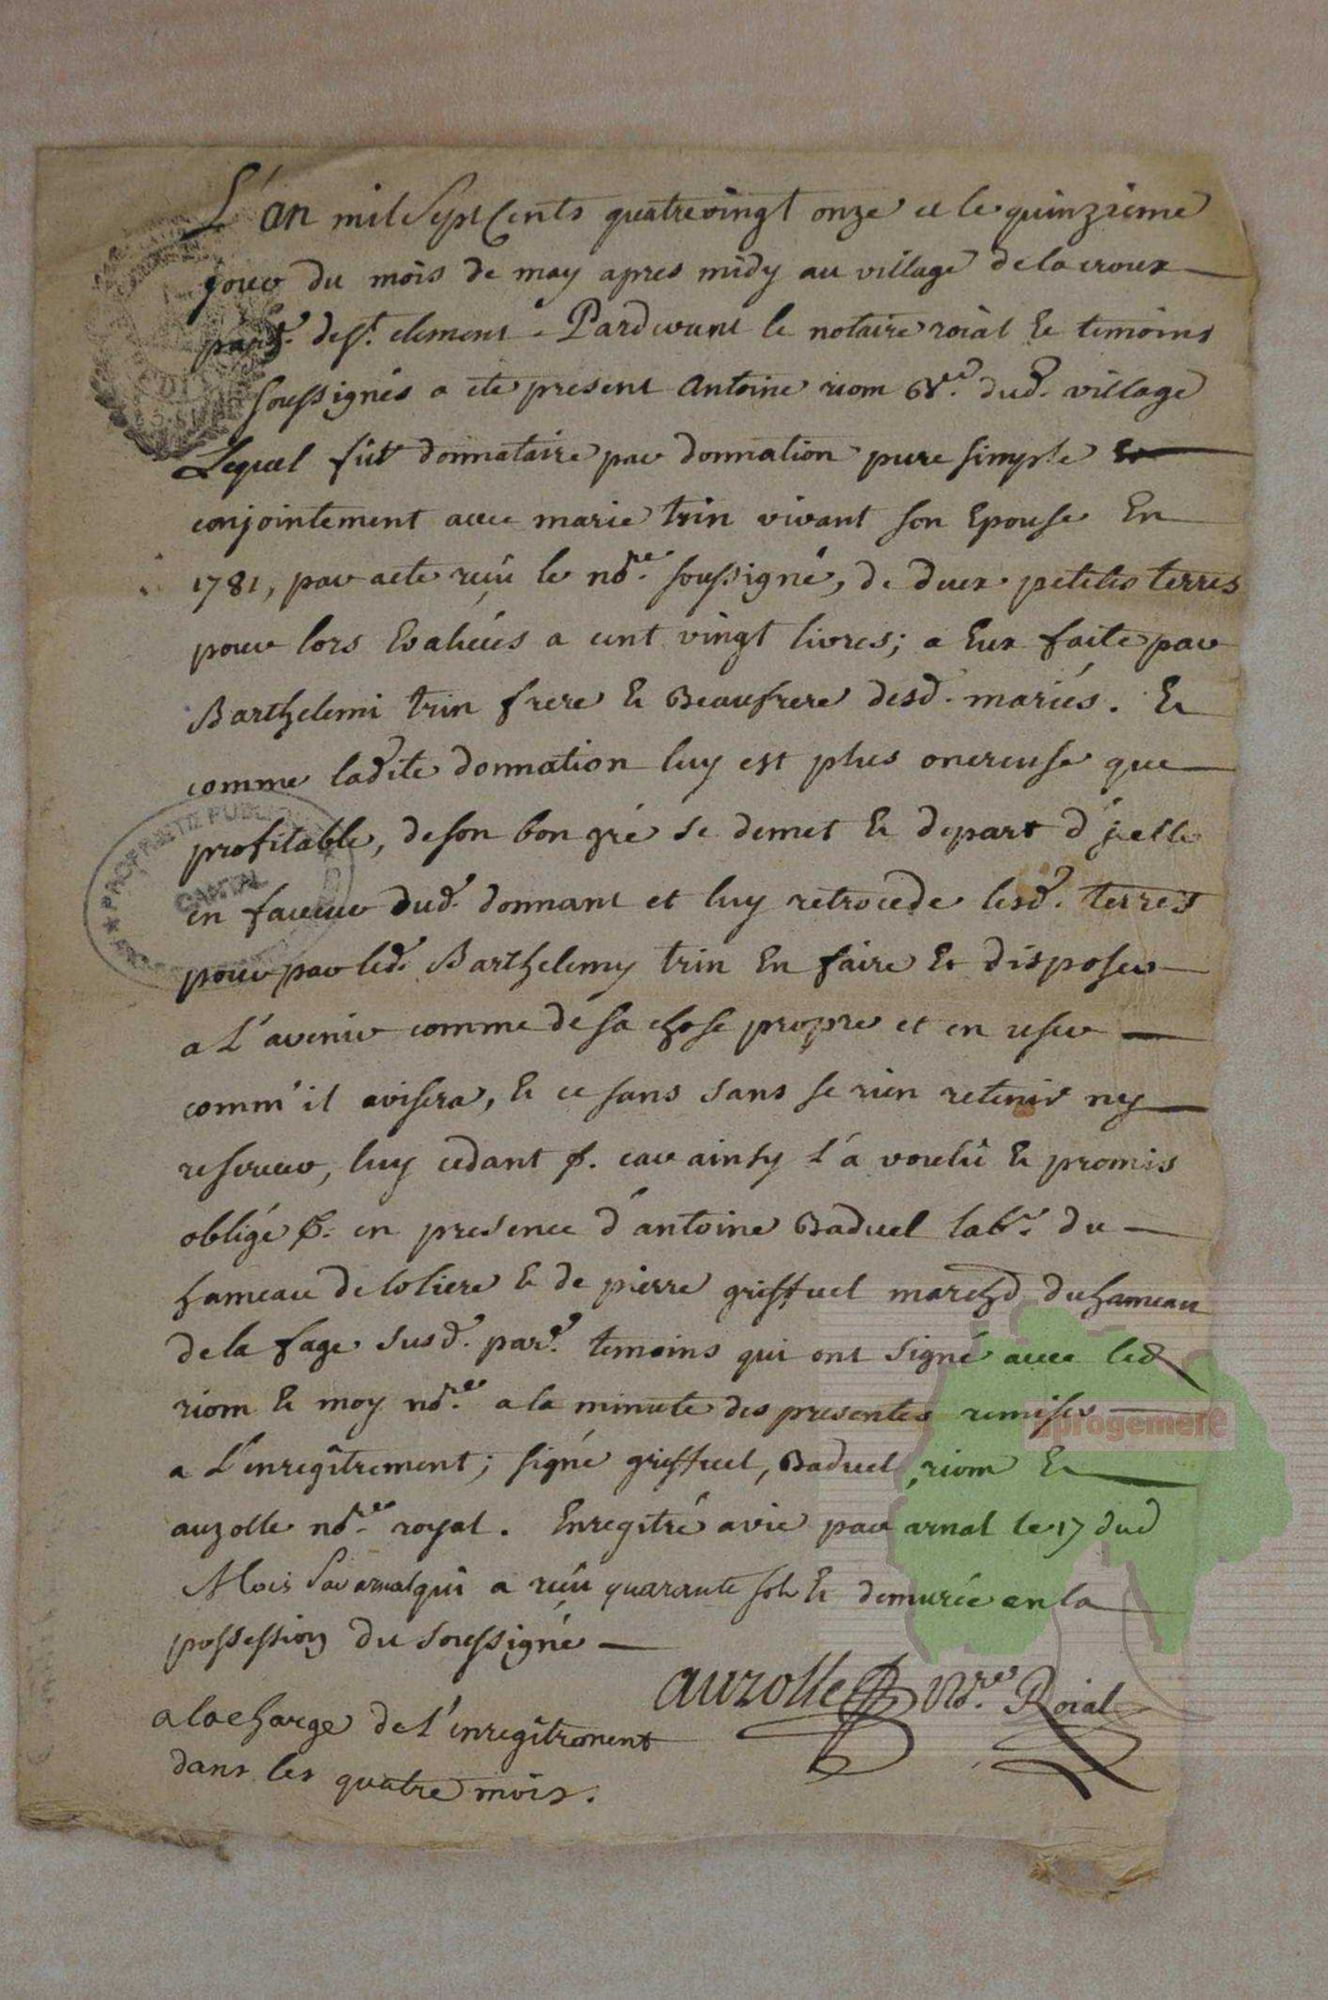 L'an mil Sept Cents quatrevingt onze et le quinzieme
jour du mois de may apres midy au village de la croux
parse. de st. clement. Pardevant le notaire roial & temoins
soussignés a eté present Antoine riom dud. village
Lequel fut donnataire par donnation pure simple &
conjointement avec marie trin vivant son Epouse En
1781, par acte reçu le nore. soussigné, de deux petites terres
pour lors Evaluées a cent vingt livres; a Eux faite par
Barthelemi trin frere & Beaufrere desd. mariés. Et
comme ladite donnation luy est plus onereuse que
profitable, de son bon gré se demet & depart d'jcelle
en faveur dud. donnant et luy retrocede lesd. terres
pour par led. Barthelemy trin En faire & disposer
a L'avenir comme de sa chose propre et en user
comm'il avisera, & ce sans sans se rien retenir ny
reserver, luy cedant &. car ainsy l'a voulu & promis
obligé &. en presence d'antoine Baduel labr. du
hameau de loliere & de pierre griffuel marchd. du hameau
de la fage susd. parse. temoins qui ont signé avec led
riom & moy nore. a la minute des presentes remises
a L'enregitrement; signé griffuel, Baduel, riom &
auzolle nore. royal. Enregitré a vic par arnal le 17 dud
Mois par arnal qui a reçu quarante sols & demurée en la
possession du soussigné
auzolle Nore. Roial
a la charge de l'enregitrement
dans les quatre mois.
PROPRIETE PUBLIQUE
CANTAL
aprogemere